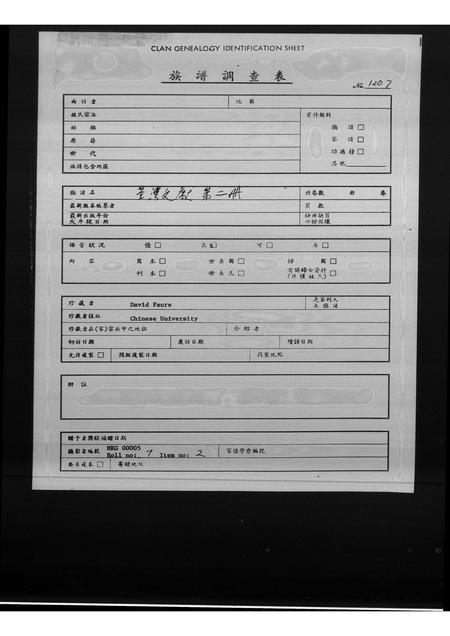 CLAN GENEALOGY IDENTIFICATION SHEET
族譜調查表
No. 1207
面訪者 地區
姓氏宗注 資料類別
始祖 族譜 □
原籍 家譜 □
世代 功德榜 □
族譜包含地區 其他
族譜名 荃灣文獻 第二冊 冊卷數 冊 卷
最新版本編纂者 頁數
最新出版年份
或手段日期
保管狀況 優 □ 良 □ 可 □ 劣 □
內容 寫本 □ 世系圖 □ 掃圖 □
刊本 □ 世系文 □ 有關婦女資料 □
(不僅姓氏)
珍藏者 David Faure 是否列入
珍藏者住址 Chinese University
珍藏者在(家)宗族中之地位 介紹者
初訪日期 覆訪日期 贈訪日期
允許複製 □ 開始複製日期 代製地點
附註
贈予者獎狀頒贈日期
攝影者編號 HKG 00005
Roll no: 7 Item no: 2 家譜學會編號
要求複本 □ 寄贈地址